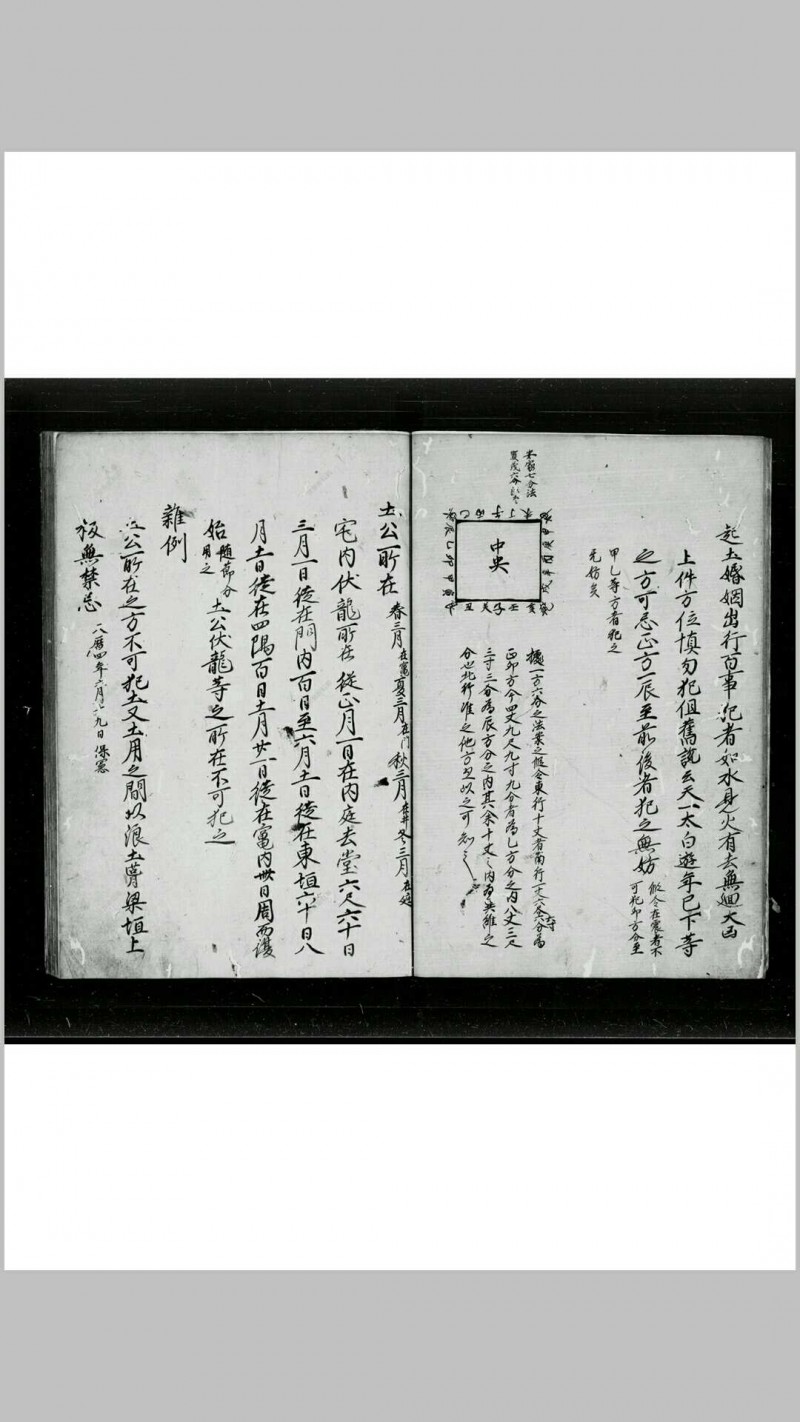 起土婚姻出行百事犯者如水見火有去無廻大凶
上件方位慎勿犯但舊説云天一太白遊年已下等
之方可忌正方一辰至前後者犯之無妨 假令在震者不
可犯卯方分至
甲乙等方者犯之
無妨矣
中央
據一方六分之法案之假令東行十丈者南行一丈六尺六寸六分為
正卯方今四丈九尺九寸九分者為乙方分之内八丈三尺
三寸三分為辰方分之内其余十丈之内為巽維之
分也北行准之他方又以之可知之
土公所在 春三月在竈夏三月在門秋三月在井冬三月在庭
宅内伏龍所在從正月一日在内庭去堂六尺六十日
三月一日徙在門内百日至六月十一日徙在東垣六十日八
月十一日徙在四隅百日十一月廿一日徙在竈内卌日周而復
始 隨節分
用之 土公伏龍等之所在不可犯之
雜例
土公所在之方不可犯土又土用之間以浪土葺築垣上
板無禁忌 四年六月 九日 保憲